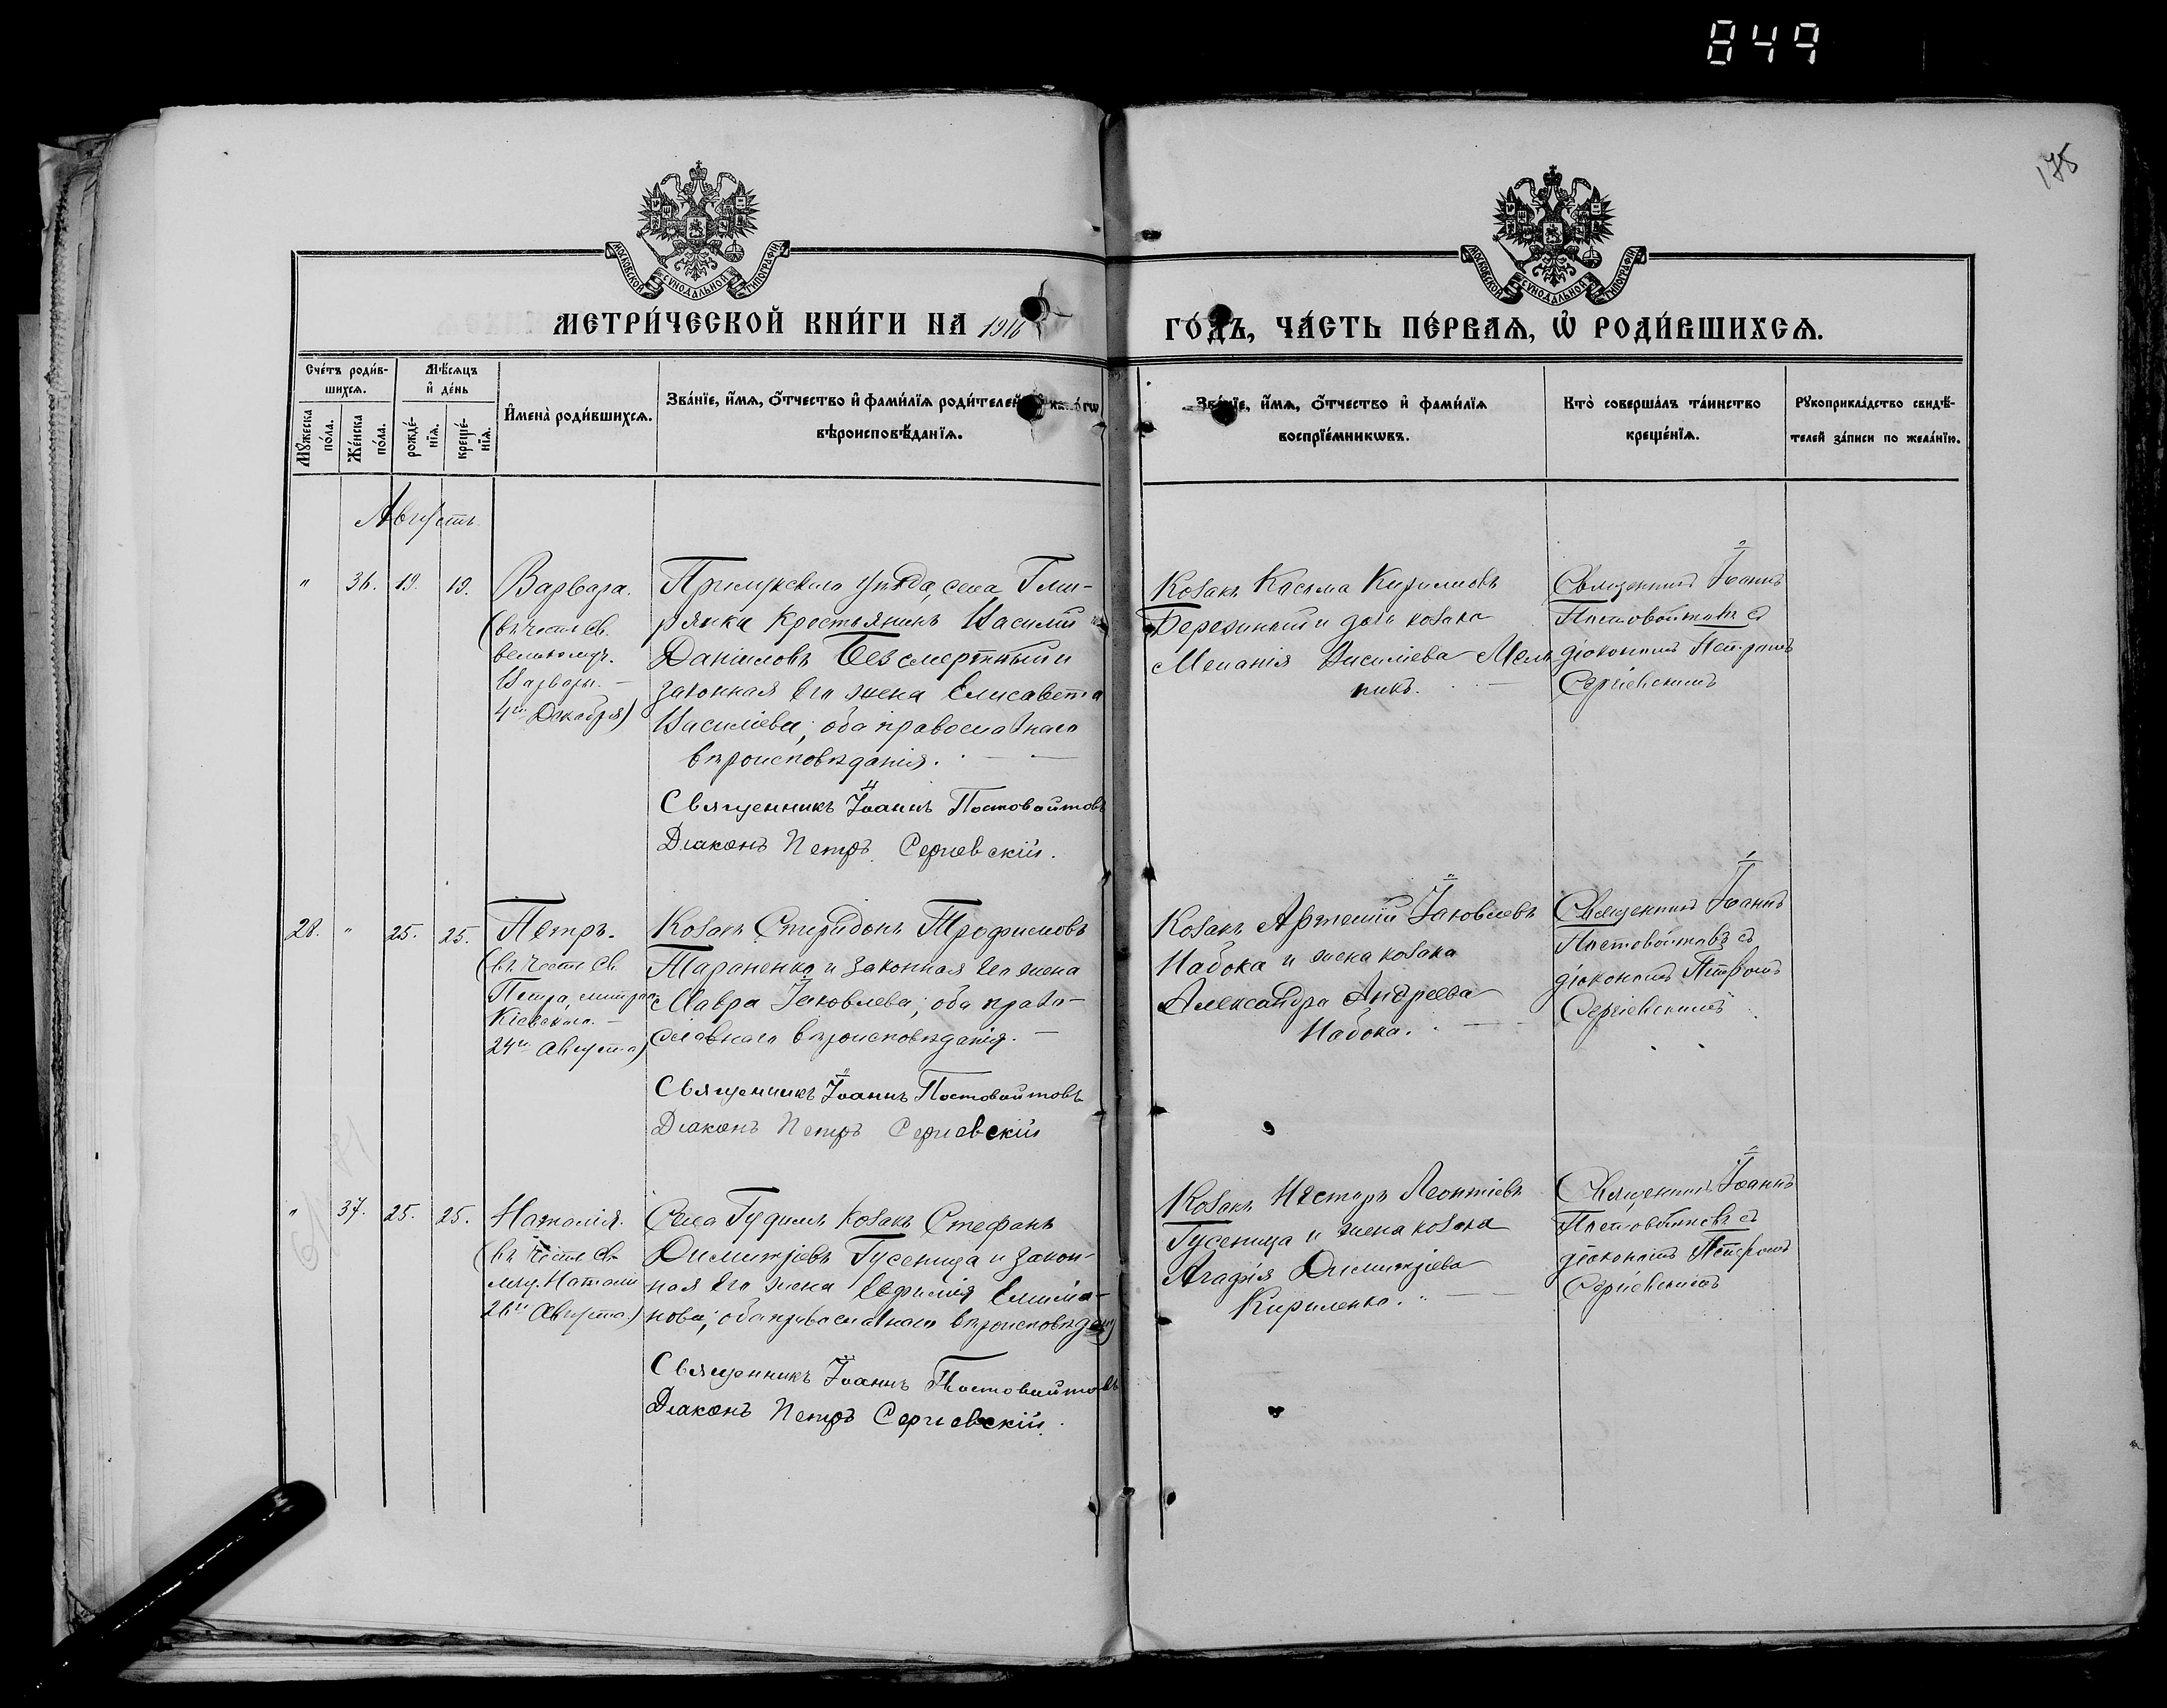 849
175
МОСКОВСКОЙ СУНОДАЛЬНОЙ ТИПОГРАФІИ
МОСКОВСКОЙ СУНОДАЛЬНОЙ ТИПОГРАФІИ
МЕТРИ́ЧЕСКОЙ КНИ́ГИ НА 1916
ГО́ДЪ, ЧА́СТЬ ПЕ́РВАѦ, Ѡ РОДИ́ВШИХСѦ.
Сче́тъ роди́в-
шихсѧ.
Мꙋ́жеска
по́ла.
Же́нска
по́ла.
Мѣ́сѧцъ
и҆ де́нь
рожде́-
нїѧ.
креще́-
нїѧ.
И҆мена̀ роди́вшихсѧ.
Зва́нїе, и҆́мѧ, ѻ҆́тчество и҆ фами́лїѧ роди́телей
вѣроисповѣ́данїѧ.
Зва́нїе, и҆́мѧ, ѻ҆́тчество и҆ фами́лїѧ
воспрїе́мникѡвъ.
Кто̀ соверша́лъ та́инство
креще́нїѧ.
Рꙋкоприкла́дство свидѣ́-
телей за́писи по жела́нїю.
Августъ
" 36. 19. 19.
Варвара.
(въ честь св.
великомуч.
Варвары. —
4го Декабря)
Прилукскаго уѣзда, села Гми-
рянки крестьянинъ Василій
Даніиловъ Безсмертный и
законная его жена Елисавета
Васильева; оба православнаго
вѣроисповѣданія. —
Священникъ Іоаннъ Постовойтовъ
Діаконъ Петръ Сергіевскій.
Козакъ Косьма Кирилловъ
Березинскій и дочь козака
Меланія Васильева Мель-
никъ. —
Священникъ Іоаннъ
Постовойтовъ съ
діакономъ Петромъ
Сергіевскимъ
28. " 25. 25.
Петръ.
(въ честь св.
Петра, митроп.
Кіевскаго. —
24го Августа)
Козакъ Спиридонъ Трофимовъ
Тараненко и законная его жена
Мавра Іаковлева; оба право-
славнаго вѣроисповѣданія. —
Священникъ Іоаннъ Постовойтовъ
Діаконъ Петръ Сергіевскій
Козакъ Артемій Іаковлевъ
Набока и жена козака
Александра Андреева
Набока. —
Священникъ Іоаннъ
Постовойтовъ съ
діакономъ Петромъ
Сергіевскимъ
" 37. 25. 25.
Наталія.
(въ честь св.
муч. Наталіи
26го Августа.)
Села Гудимъ козакъ Стефанъ
Димитріевъ Гусеница и закон-
ная его жена Евфимія Емилiа-
нова; оба православнаго вѣроисповѣдан.
Священникъ Іоаннъ Постовойтовъ
Діаконъ Петръ Сергіевскій.
Козакъ Несторъ Леонтіевъ
Гусеница и жена козака
Агафія Димитріева
Кириленко. —
Священникъ Іоаннъ
Постовойтовъ съ
діакономъ Петромъ
Сергіевскимъ